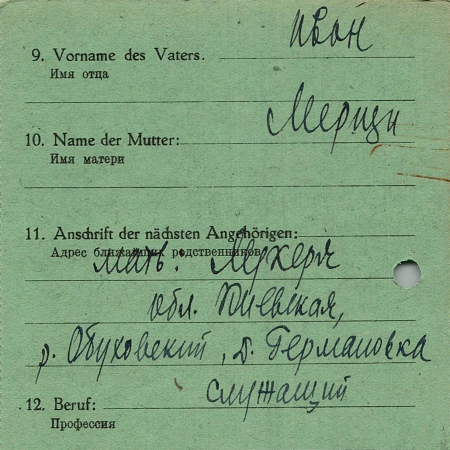 Ивон
9. Vorname des Vaters.
Имя отца
10. Name der Mutter:
Имя матери
11. Anschrift der nächsten Angehörigen:
Адрес ближайших родственников
мать:
обл. Киевская,
р. Обуховский, д. Германовка
служащий
12. Beruf:
Профессия